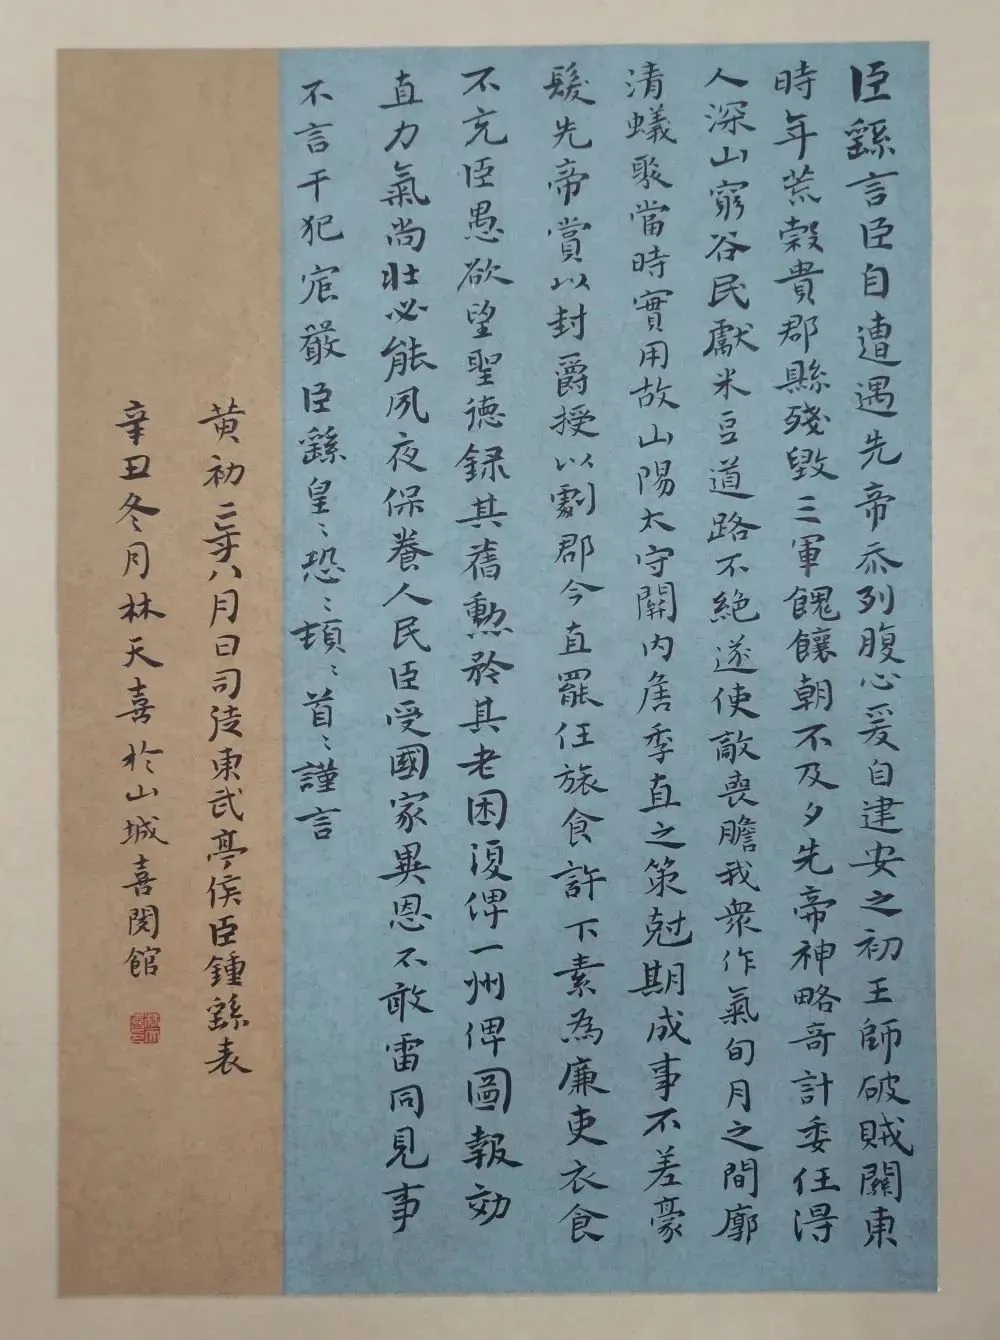 臣繇言臣自遭遇先帝忝列腹心爰自建安之初王師破賊關東
時年荒榖貴郡縣殘毀三軍餽饟朝不及夕先帝神略奇計委任得
人深山窮谷民獻米豆道路不絕遂使敵喪膽我衆作氣旬月之間廓
清蟻聚當時實用故山陽太守關内侯季直之策尅期成事不差豪
髮先帝賞以封爵授以劇郡今直罷任旅食許下素為廉吏衣食
不充臣愚欲望聖德録其舊勲矜其老困復俾一州俾圖報効
直力氣尚壯必能夙夜保養人民臣受國家異恩不敢雷同見事
不言干犯宸嚴臣繇皇〻恐〻頓〻首〻謹言
黄初二年八月日司徒東武亭侯臣鍾繇表
辛丑冬月林天喜於山城喜閱館